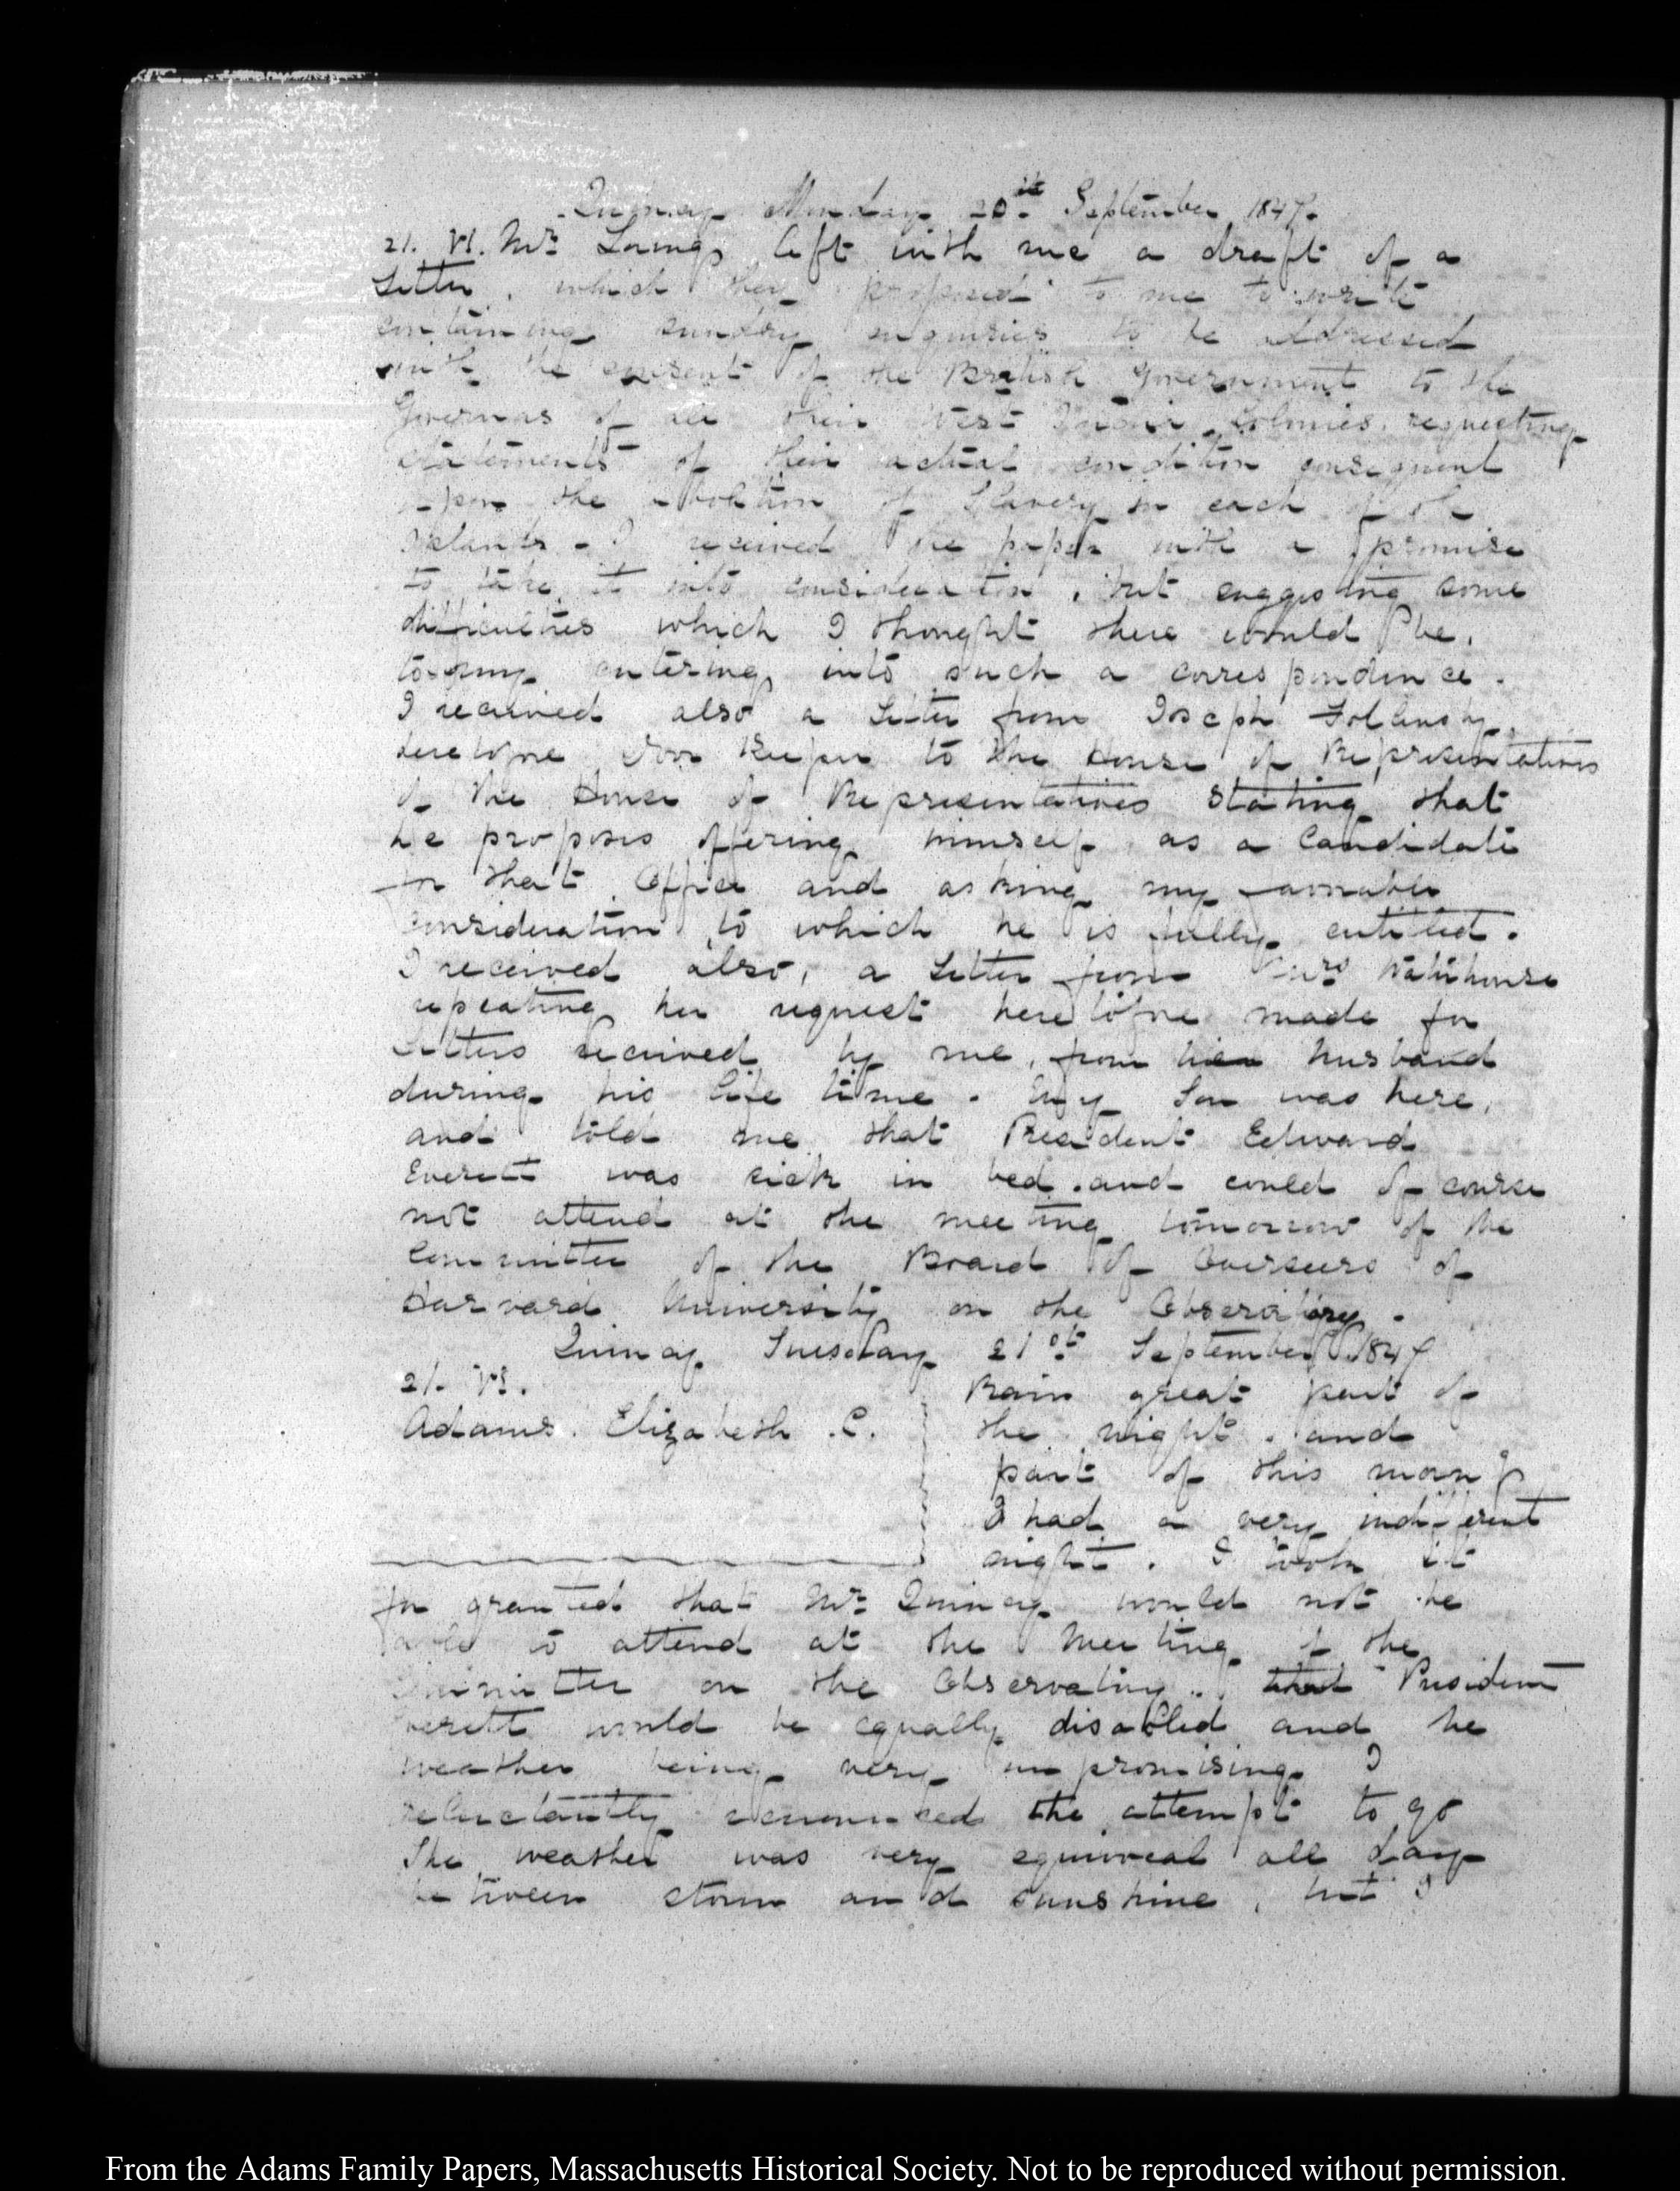 Quincy Monday 20th September 1847.
21. VI. Mr Loring left with me a draft of a
Letter, which they proposed to me to write
containing sundry enquiries to be addressed
with the consent of the British Government to the
Governors of all their West India Colonies, requesting
statements of their actual condition consequent
upon the abolition of Slavery in each of the
Islands - I received the paper with a promise
to take it into consideration, but suggesting some
difficulties which I thought there would be,
to my entering into such a correspondence.
I received also a Letter from Joseph Follansby,
heretofore Door Keeper to the House of Representatives
of the House of Representatives stating that
he proposes offering himself as a Candidate
for that Office and asking my favourable
consideration to which he is fully entitled.
I received also, a Letter from Mrs Waterhouse
repeating her request heretofore made for
Letters received by me, from her husband
during his life time. My Son was here,
and told me that President Edward
Everett was sick in bed. and could of course
not attend at the meeting tomorrow of the
Committee of the Board of Overseers of
Harvard University on the Observatory.
Quincy Tuesday 21st September 1847
21. VI.
Adams. Elizabeth. C.
Rain great part of
the night. and
part of this morng
I had a very indifferent
night. I took it
for granted that Mr Quincy would not be
able to attend at the Meeting of the
Committee on the Observatory. that President
Everett would be equally disabled and the
weather being very unpromising I
reluctantly renounced the attempt to go
The weather was very equivocal all day
between storm and sunshine, but I
From the Adams Family Papers, Massachusetts Historical Society. Not to be reproduced without permission.